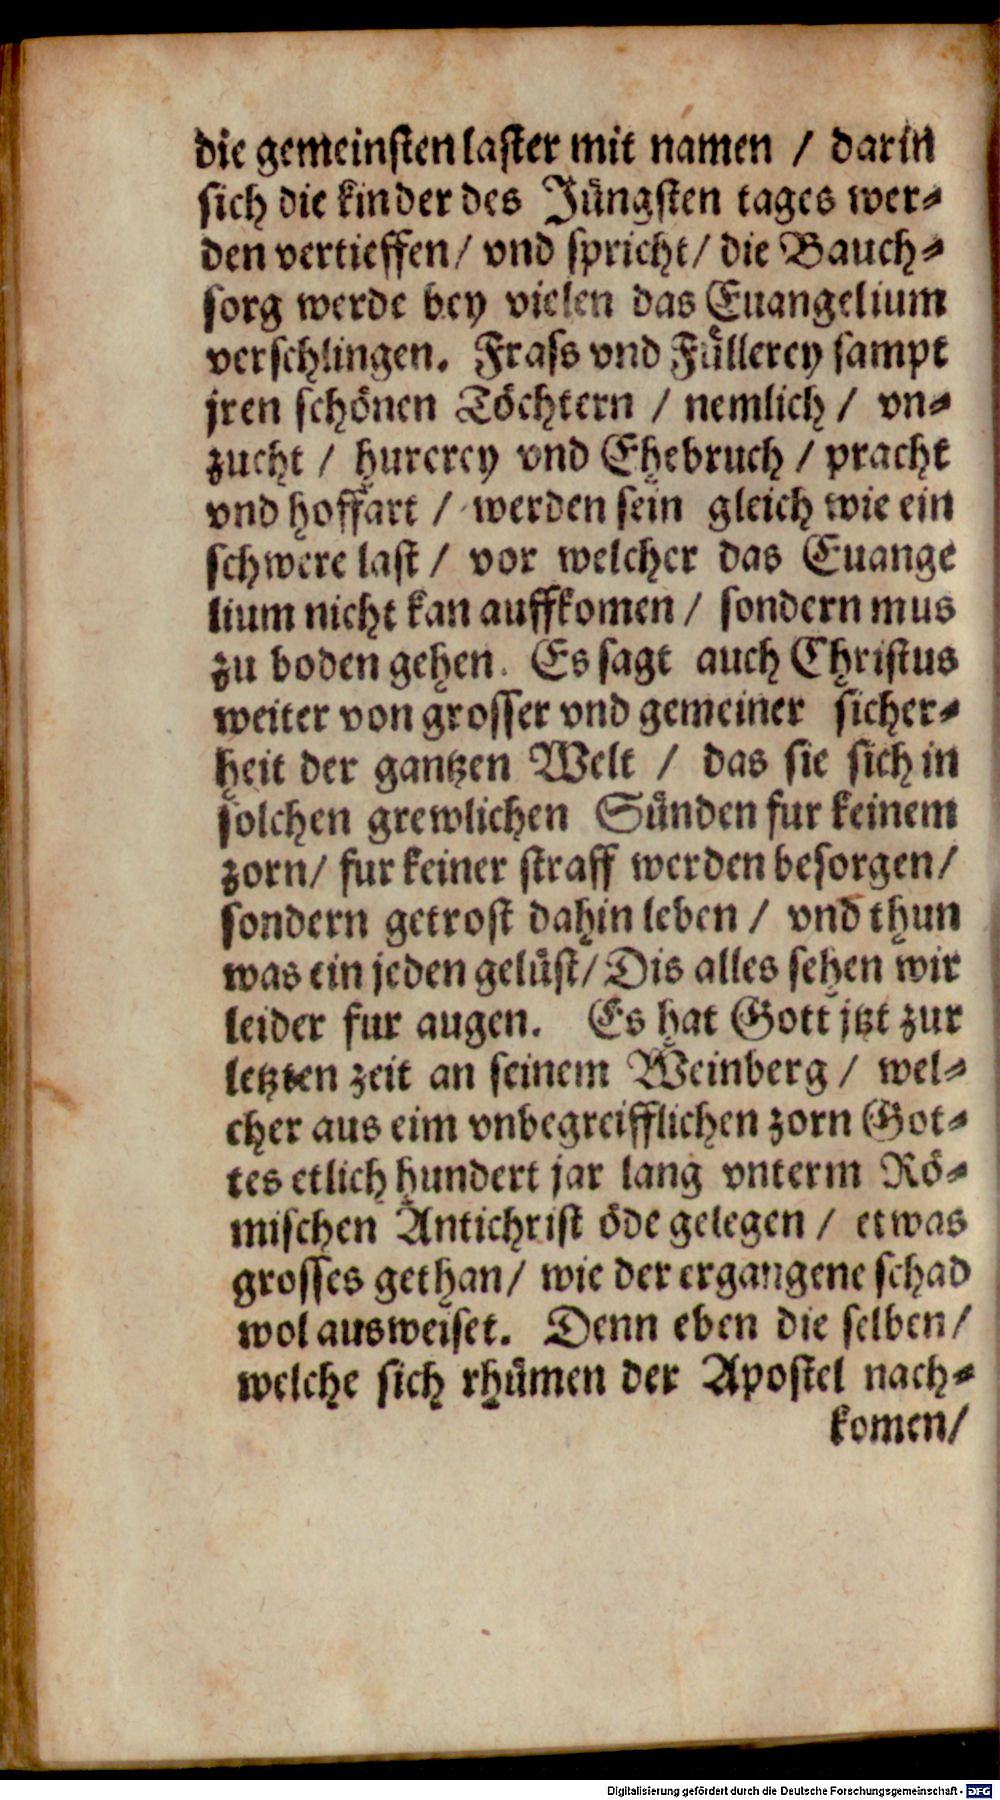 die gemeinsten laster mit namen / darin
sich die kinder des Jüngsten tages wer⸗
den vertieffen/ vnd spricht/ die Bauch⸗
sorg werde bey vielen das Euangelium
verschlingen. Frass vnd Füllerey sampt
jren schönen Töchtern / nemlich / vn⸗
zucht / hurerey vnd Ehebruch / pracht
vnd hoffart / werden sein gleich wie ein
schwere last / vor welcher das Euange
lium nicht kan auffkomen / sondern mus
zu boden gehen. Es sagt auch Christus
weiter von grosser vnd gemeiner sicher⸗
heit der gantzen Welt / das sie sich in
solchen grewlichen Sünden fur keinem
zorn/ fur keiner straff werden besorgen/
sondern getrost dahin leben / vnd thun
was ein jeden gelüst/ Dis alles sehen wir
leider fur augen. Es hat Gott jtzt zur
letzten zeit an seinem Weinberg / wel⸗
cher aus eim vnbegreifflichen zorn Got⸗
tes etlich hundert jar lang vnterm Rö⸗
mischen Antichrist öde gelegen / etwas
grosses gethan/ wie der ergangene schad
wol ausweiset. Denn eben die selben/
welche sich rhümen der Apostel nach⸗
komen/
Digitalisierung gefördert durch die Deutsche Forschungsgemeinschaft - DFG